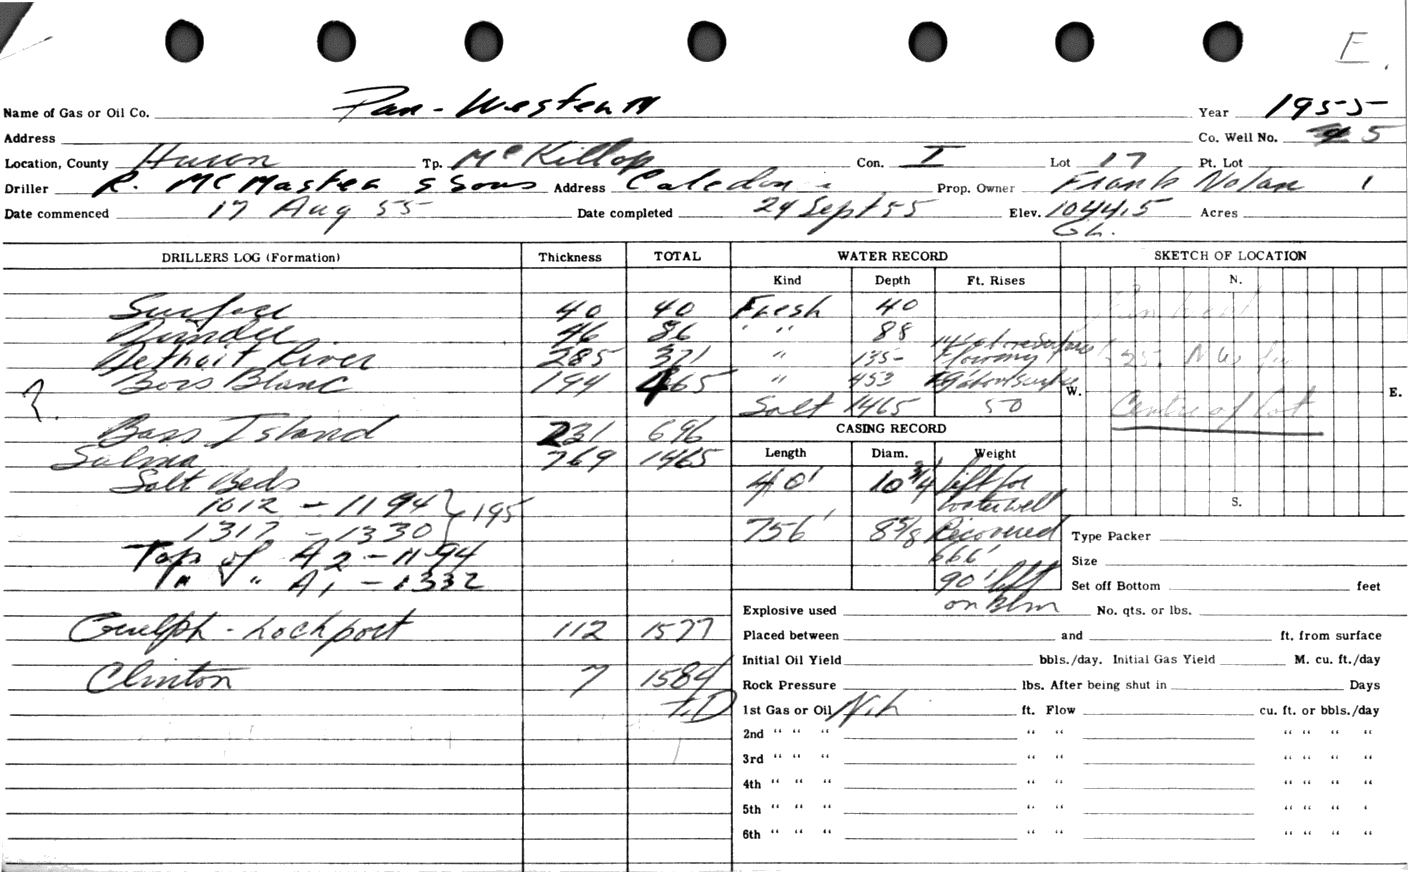 E.
Name of Gas or Oil Co. Pan-Western Year 1955
Address Co. Well No. 5
Location, County Huron Tp. McKillop Con. I Lot 17 Pt. Lot
Driller R. McMaster & Sons Address Caledon Prop. Owner Frank Nolan
Date commenced 17 Aug 55 Date completed 24 Sept 55 Elev. 1044.5 Acres
GL.
DRILLERS LOG (Formation) Thickness TOTAL WATER RECORD SKETCH OF LOCATION
Kind Depth Ft. Rises N.
Surface 40 40 Fresh 40
Dundee 46 86 " " 88 above surface
Detroit River 285 371 " 135 flowing
Bois Blanc 194 465 " 453 above surface
Salt 1465 50 W. Centre of Lot E.
Bass Island 231 696 CASING RECORD
Salina 769 1465 Length Diam. Weight
Salt Beds 40' 10 3/4 left for
1012 - 1194 } 195 water well S.
1317 - 1330 756' 8 5/8 Recovered Type Packer
Top of A2 - 1194 666' Size
" " A1 - 1332 90' left Set off Bottom feet
on Btm
Explosive used No. qts. or lbs.
Guelph - Lockport 112 1577 Placed between and ft. from surface
Initial Oil Yield bbls./day. Initial Gas Yield M. cu. ft./day
Clinton 7 1584 Rock Pressure lbs. After being shut in Days
T.D 1st Gas or Oil Nil ft. Flow cu. ft. or bbls./day
2nd " " " " " " " " "
3rd " " " " " " " " "
4th " " " " " " " " "
5th " " " " " " " " "
6th " " " " " " " " "